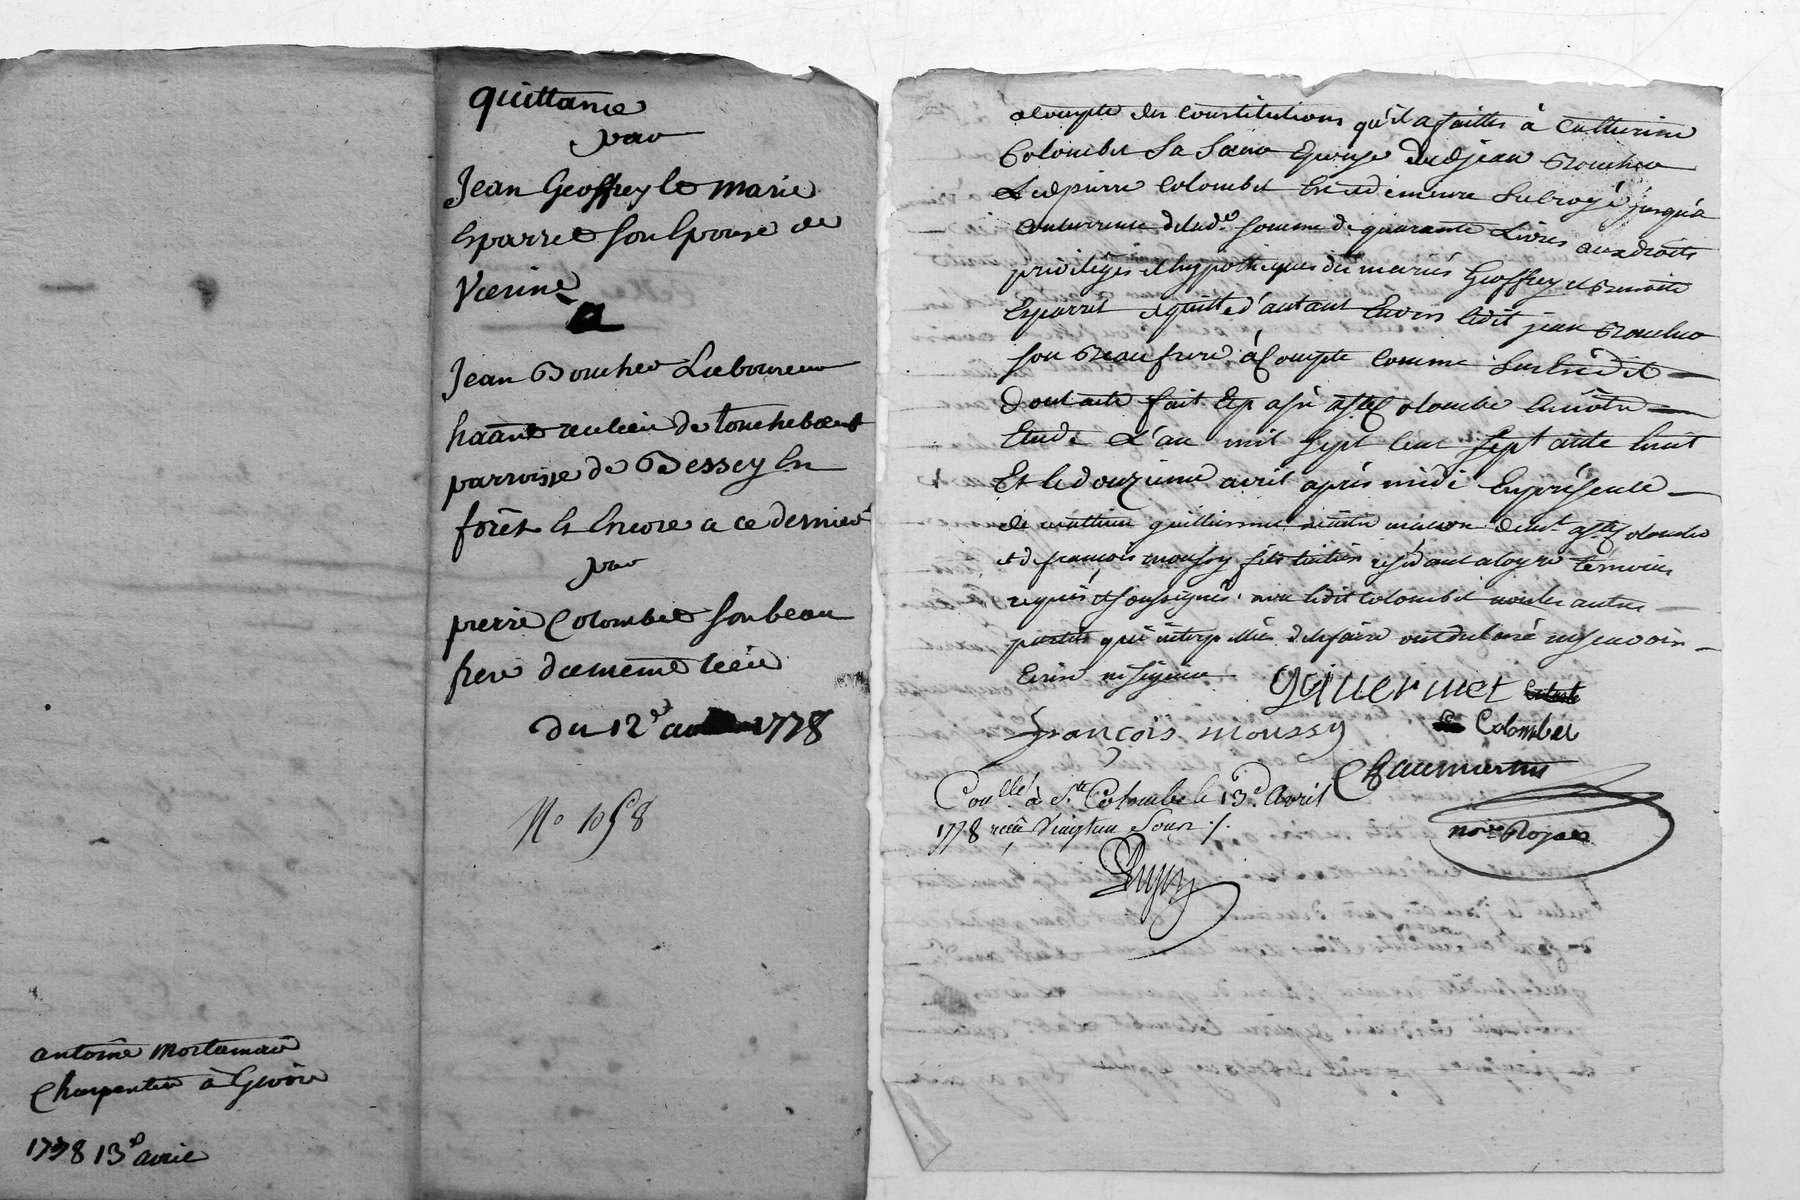 quittance
par
Jean Geoffrey et marie
Esparret son Epouse de
Verine
a
Jean Boucher Laboureur
haânt au lieu de touchebœuf
parroisse de Bessey En
forêt Et Encore a ce dernier
par
pierre Colombet son beau
frere du même lieu
du 12e 1778
No 1058
antoine mortamard
Charpentier à Givors
1778 13e avril
acompte des Constitutions qu'il a faittes à Catherine
Colombet Sa Sœur Epouse dud jean Boucher
Led pierre Colombet Est et demeure Subrogé jusqu'a
Concurrence de lad. Somme de quarante Livres aux droits
privilèges et hypothèques des mariés Geoffrey et Benoite
Esparret et quitte d'autant Envers ledit jean Boucher
son Beau frere à Compte Comme Sus Est dit
dont acte fait Et passé à Ste Colombe En nôtre
Etude L'an mil Sept Cent Septante huit
Et le douzieme avril après midi En présence
de guillermet maçon demt. à Ste Colombe
et de françois moussy résidant a témoins
requis et soussignés avec ledit Colombet non les autres
parties qui interpellées de le faire ont declaré ne scavoir
Ecrire ni signer
Guillermet
françois moussy Colombet
Chaumartin
nore Royal
Conllé à Ste Colombe le 13e Avril
1778 reçu Vingt un Sous